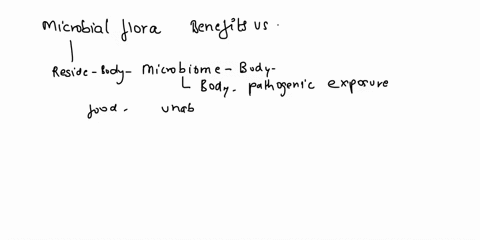 Microbial flora Benefits us.
Reside-Body- Microbiome - Body-
Body. pathogenic exposure
food. unab